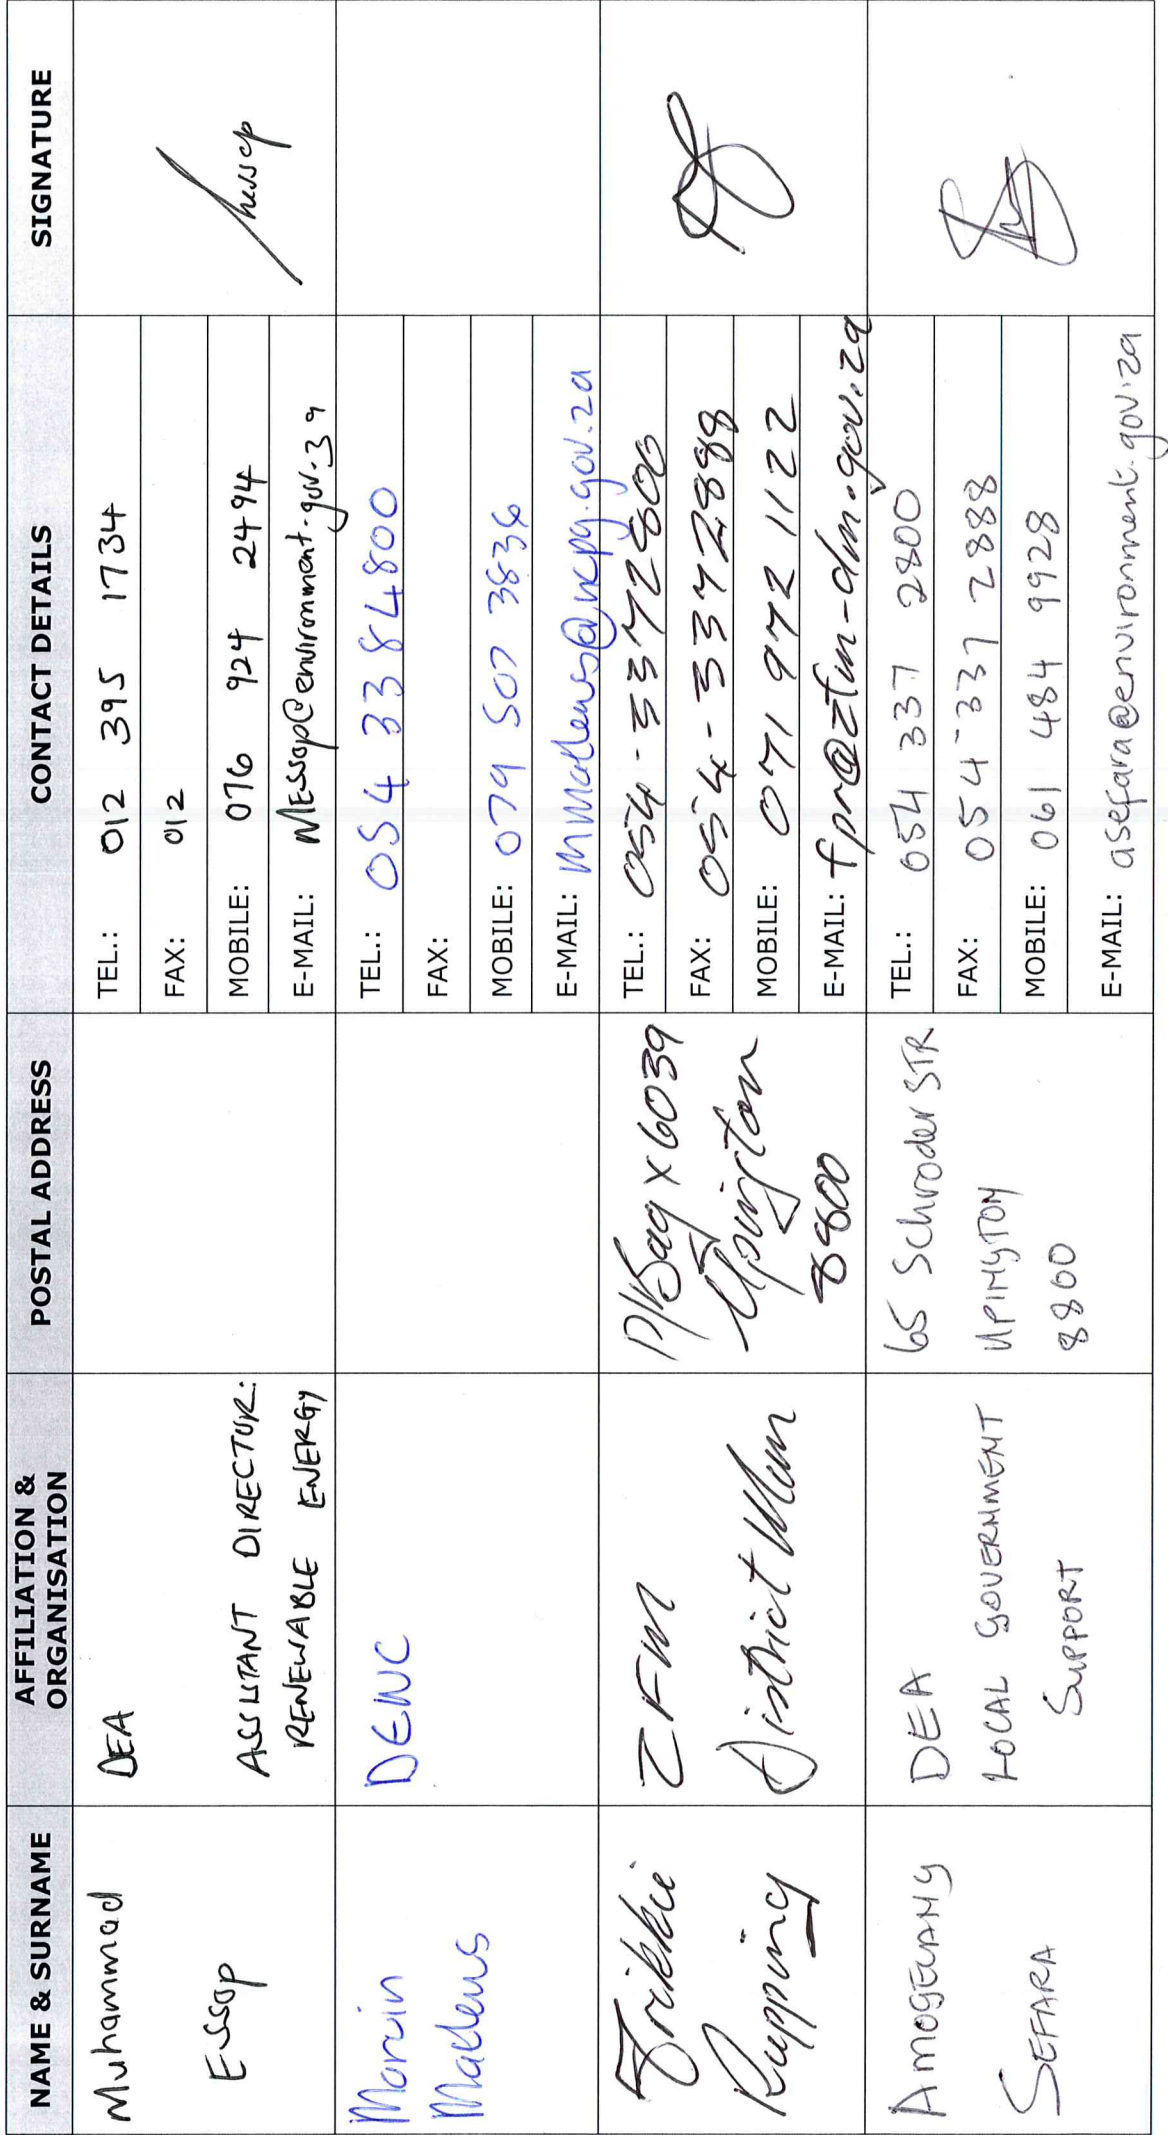 NAME & SURNAME
AFFILIATION &
ORGANISATION
POSTAL ADDRESS
CONTACT DETAILS
SIGNATURE
Muhammad
Essop
DEA
ASSISTANT DIRECTOR:
RENEWABLE ENERGY
TEL.: 012 395 1734
FAX: 012
MOBILE: 076 924 2494
E-MAIL: MEssop@environment.gov.za
DENC
TEL.: 054 33 84800
FAX:
MOBILE: 079 507 3836
E-MAIL:
Frikkie
Rupping
ZFM
District Mun
P/Bag X6039
Upington
8800
TEL.: 054 - 3372800
FAX: 054 - 3372888
MOBILE: 071 972 1122
E-MAIL: fpr@zfm-dm.gov.za
AMOGELANG
SEFARA
DEA
LOCAL GOVERNMENT
SUPPORT
65 Schroder STR
UPINGTON
8800
TEL.: 054 337 2800
FAX: 054-337 2888
MOBILE: 061 484 9928
E-MAIL: asefara@environment.gov.za